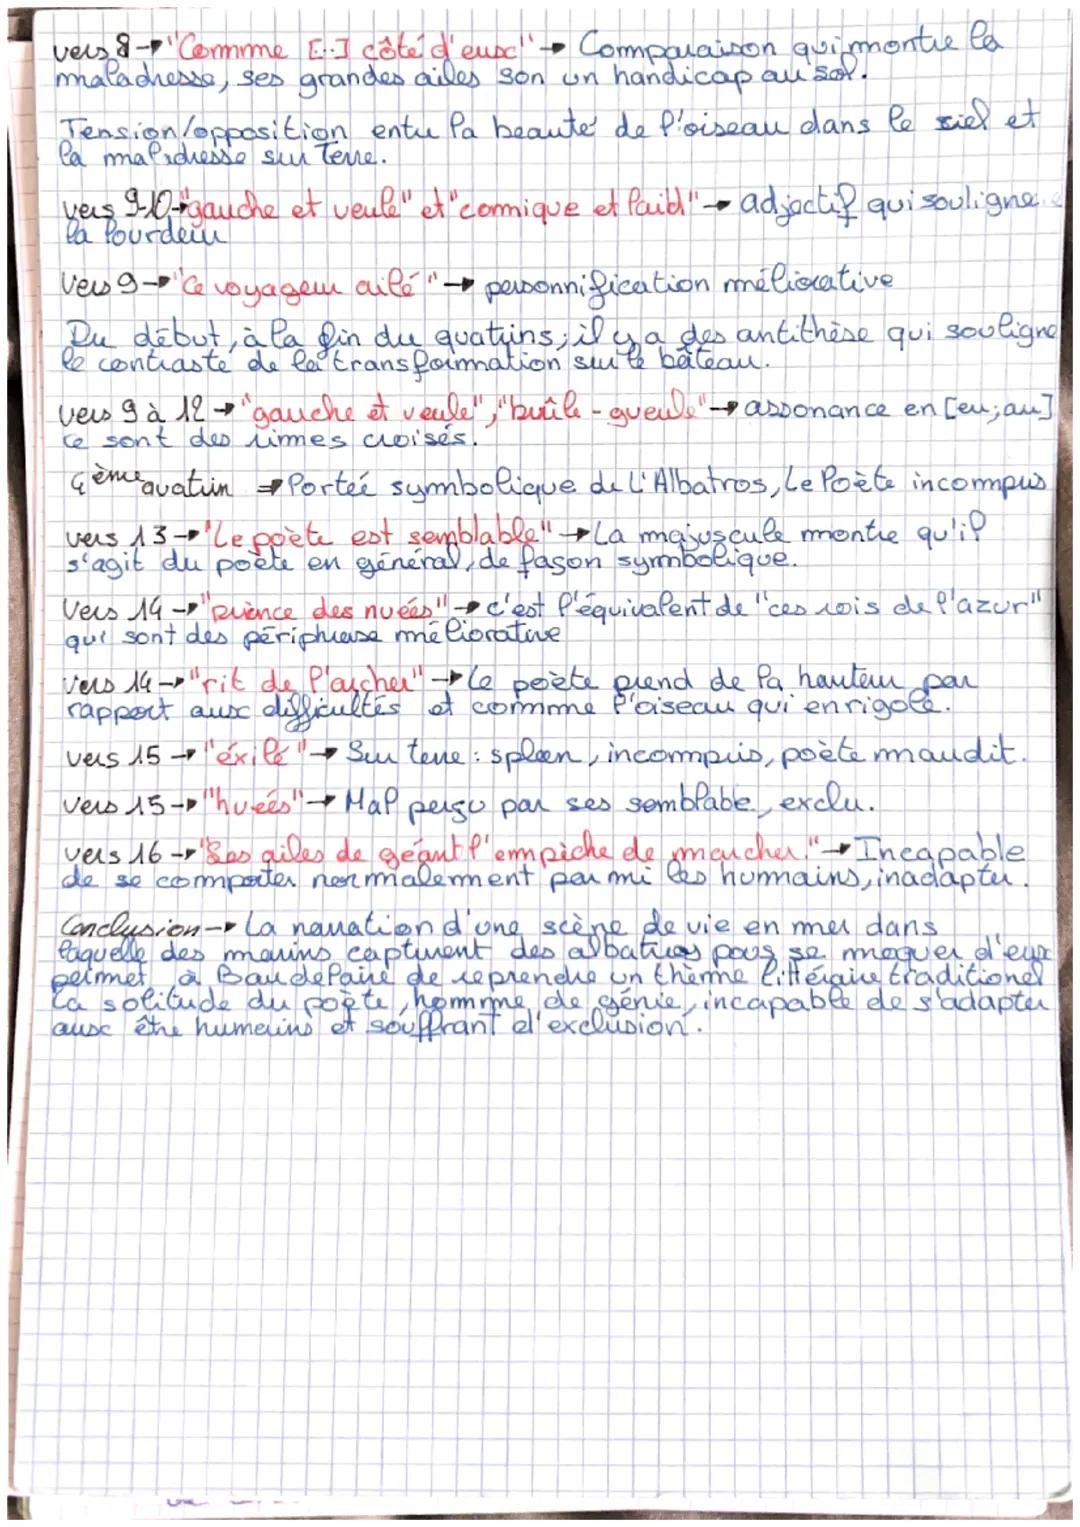 vers 8 → "Commme [...] côté d'eux" → Comparaison qui montre la
maladresse, ses grandes ailes son un handicap au sol.
Tension/opposition entre la beauté de l'oiseau dans le ciel et
la maladresse sur Terre.
vers 9-10 → "gauche et veule" et "comique et laid" → adjectif qui souligne
la lourdeur
Vers 9 → "Ce voyageur ailé" → personnification méliorative
Du début, à la fin du quatrins, il y a des antithèse qui souligne
le contraste de la transformation sur le bâteau.
vers 9 à 12 → "gauche et veule", "brûle - gueule" → assonance en [eu; au]
ce sont des rimes croisés.
4ème quatrin ⇒ Portée symbolique de L'Albatros, Le Poète incompris
vers 13 → "Le poète est semblable" → La majuscule montre qu'il
s'agit du poète en général, de façon symbolique.
Vers 14 → "prience des nuées" → c'est l'équivalent de "ces rois de l'azur"
qui sont des périphrase méliorative
vers 14 → "rit de l'archer" → Le poète prend de la hauteur par
rapport aux difficultés et comme l'oiseau qui en rigole.
vers 15 → "éxilé" → Sur terre : spleen, incompris, poète maudit.
vers 15 → "huées" → Mal perçu par ses semblable, exclu.
vers 16 → "Ses ailes de géant l'empiche de marcher." → Incapable
de se comporter normalement parmi les humains, inadapter.
Conclusion → La narration d'une scène de vie en mer dans
laquelle des marins capturent des albatros pour se moquer d'eux
permet à Baudelaire de reprendre un thème littéraire traditionel
La solitude du poète, homme de génie, incapable de s'adapter
aux être humains et souffrant d'exclusion.